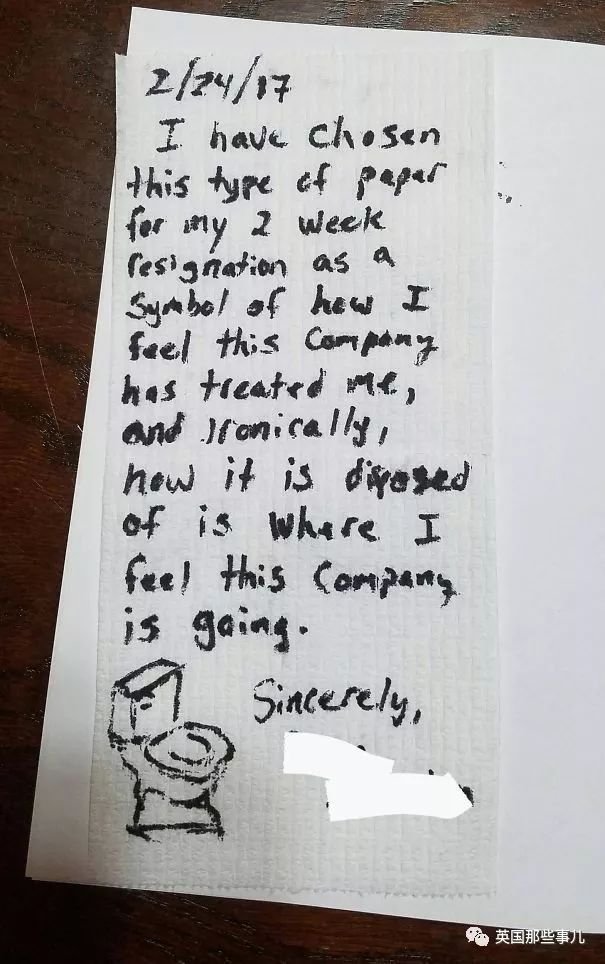 2/24/17
I have chosen
this type of paper
for my 2 week
resignation as a
symbol of how I
feel this Company
has treated me,
and ironically,
how it is disposed
of is where I
feel this Company
is going.
Sincerely,
英国那些事儿